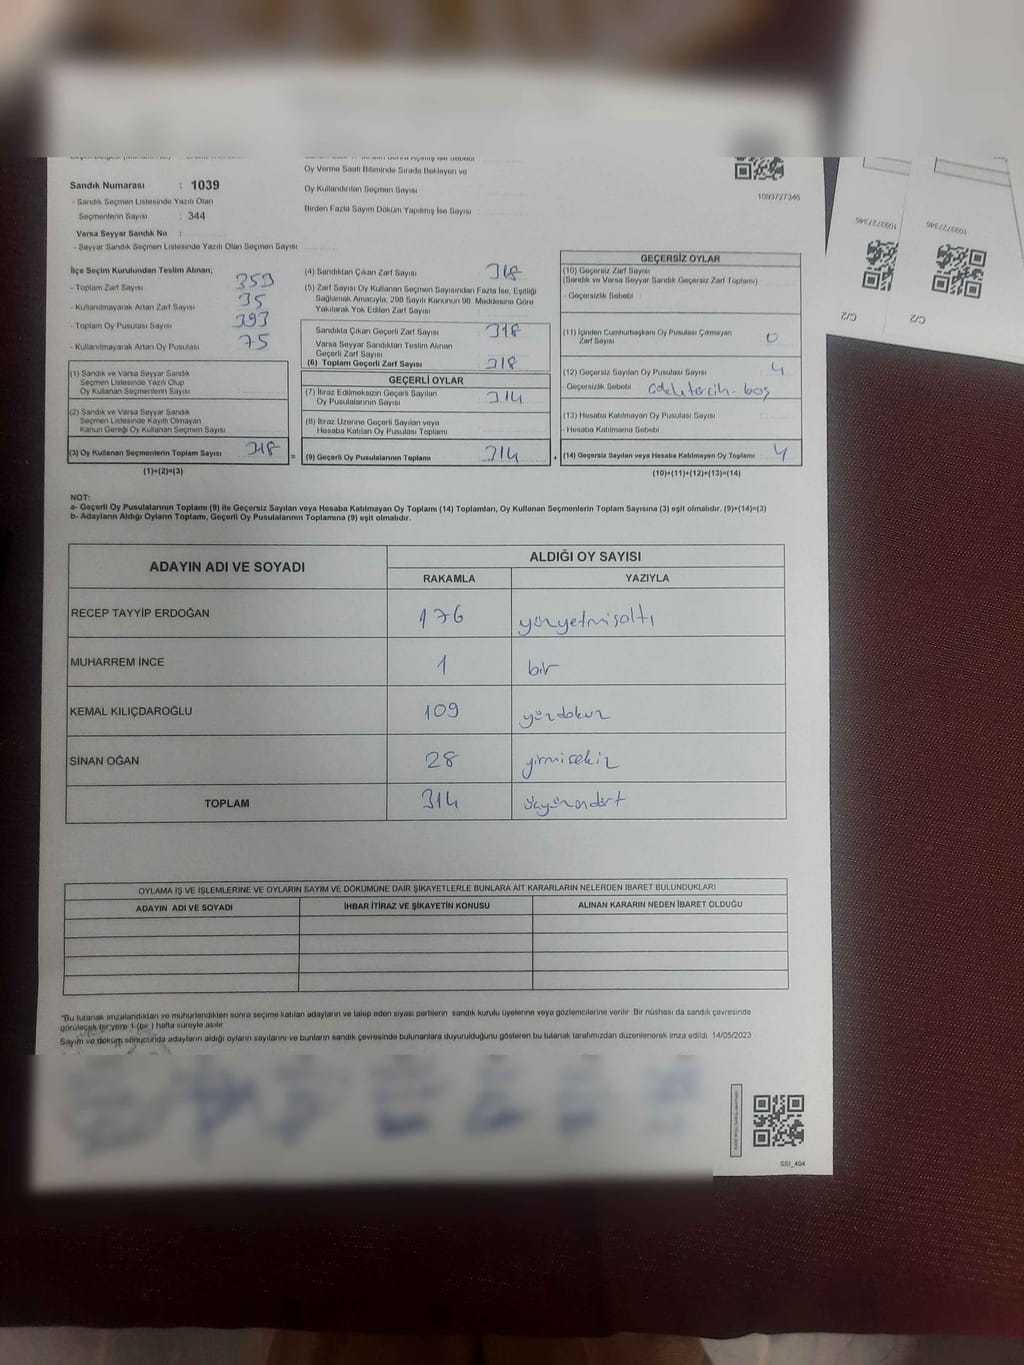 Oy Verme Saati Bitiminde Sırada Bekleyen ve
Oy Kullandırılan Seçmen Sayısı
Birden Fazla Sayım Döküm Yapılmış İse Sayısı
1093727346
Sandık Numarası : 1039
- Sandık Seçmen Listesinde Yazılı Olan
Seçmenlerin Sayısı : 344
Varsa Seyyar Sandık No :
- Seyyar Sandık Seçmen Listesinde Yazılı Olan Seçmen Sayısı
İlçe Seçim Kurulundan Teslim Alınan;
- Toplam Zarf Sayısı 353
- Kullanılmayarak Artan Zarf Sayısı 35
- Toplam Oy Pusulası Sayısı 393
- Kullanılmayarak Artan Oy Pusulası 75
(1) Sandık ve Varsa Seyyar Sandık
Seçmen Listesinde Yazılı Olup
Oy Kullanan Seçmenlerin Sayısı
(2) Sandık ve Varsa Seyyar Sandık
Seçmen Listesinde Kayıtlı Olmayan
Kanun Gereği Oy Kullanan Seçmen Sayısı
(3) Oy Kullanan Seçmenlerin Toplam Sayısı 318 =
(1)+(2)=(3)
(4) Sandıktan Çıkan Zarf Sayısı 318
(5) Zarf Sayısı Oy Kullanan Seçmen Sayısından Fazla İse, Eşitliği
Sağlamak Amacıyla, 298 Sayılı Kanunun 98. Maddesine Göre
Yakılarak Yok Edilen Zarf Sayısı
Sandıkta Çıkan Geçerli Zarf Sayısı 318
Varsa Seyyar Sandıktan Teslim Alınan
Geçerli Zarf Sayısı
(6) Toplam Geçerli Zarf Sayısı 318
GEÇERLİ OYLAR
(7) İtiraz Edilmeksizin Geçerli Sayılan
Oy Pusulalarının Sayısı 314
(8) İtiraz Üzerine Geçerli Sayılan veya
Hesaba Katılan Oy Pusulası Toplamı
(9) Geçerli Oy Pusulalarının Toplamı 314 +
GEÇERSİZ OYLAR
(10) Geçersiz Zarf Sayısı
(Sandık ve Varsa Seyyar Sandık Geçersiz Zarf Toplamı)
- Geçersizlik Sebebi
(11) İçinden Cumhurbaşkanı Oy Pusulası Çıkmayan
Zarf Sayısı 0
(12) Geçersiz Sayılan Oy Pusulası Sayısı 4
- Geçersizlik Sebebi boş
(13) Hesaba Katılmayan Oy Pusulası Sayısı
- Hesaba Katılmama Sebebi
(14) Geçersiz Sayılan veya Hesaba Katılmayan Oy Toplamı 4
(10)+(11)+(12)+(13)=(14)
NOT:
a- Geçerli Oy Pusulalarının Toplamı (9) ile Geçersiz Sayılan veya Hesaba Katılmayan Oy Toplamı (14) Toplamları, Oy Kullanan Seçmenlerin Toplam Sayısına (3) eşit olmalıdır. (9)+(14)=(3)
b- Adayların Aldığı Oyların Toplamı, Geçerli Oy Pusulalarının Toplamına (9) eşit olmalıdır.
ADAYIN ADI VE SOYADI ALDIĞI OY SAYISI
RAKAMLA YAZIYLA
RECEP TAYYİP ERDOĞAN 176 yüzyetmişaltı
MUHARREM İNCE 1 bir
KEMAL KILIÇDAROĞLU 109 yüzdokuz
SİNAN OĞAN 28 yirmisekiz
TOPLAM 314 üçyüzondört
OYLAMA İŞ VE İŞLEMLERİNE VE OYLARIN SAYIM VE DÖKÜMÜNE DAİR ŞİKAYETLERLE BUNLARA AİT KARARLARIN NELERDEN İBARET BULUNDUKLARI
ADAYIN ADI VE SOYADI İHBAR İTİRAZ VE ŞİKAYETİN KONUSU ALINAN KARARIN NEDEN İBARET OLDUĞU
"Bu tutanak imzalandıktan ve mühürlendikten sonra seçime katılan adayların ve talep eden siyasi partilerin sandık kurulu üyelerine veya gözlemcilerine verilir. Bir nüshası da sandık çevresinde
görülecek bir yere 1 (bir) hafta süreyle asılır.
Sayım ve döküm sonucunda adayların aldığı oyların sayılarını ve bunların sandık çevresinde bulunanlara duyurulduğunu gösteren bu tutanak tarafımızdan düzenlenerek imza edildi. 14/05/2023
SSI_404
1093727346
C/2
1093727346
C/2